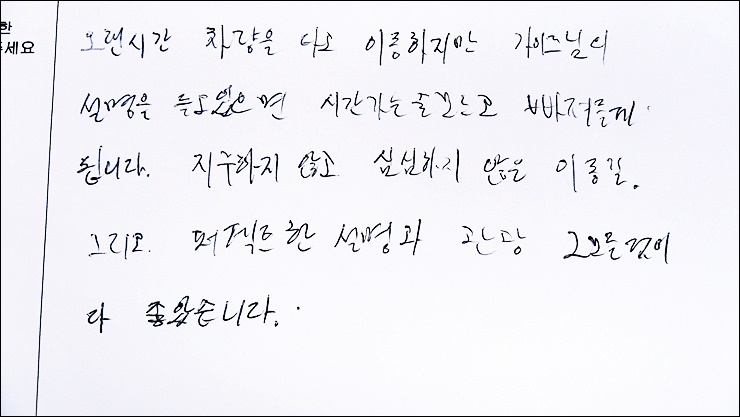 한
주세요
오랜시간 차량을 타고 이동하지만 가이드님의
설명을 듣고있으면 시간가는줄모르고 빠져들게
됩니다. 지루하지 않고 심심하지 않은 이동길.
그리고 퍼펙트한 설명과 관광 그모든것이
다 좋았습니다.